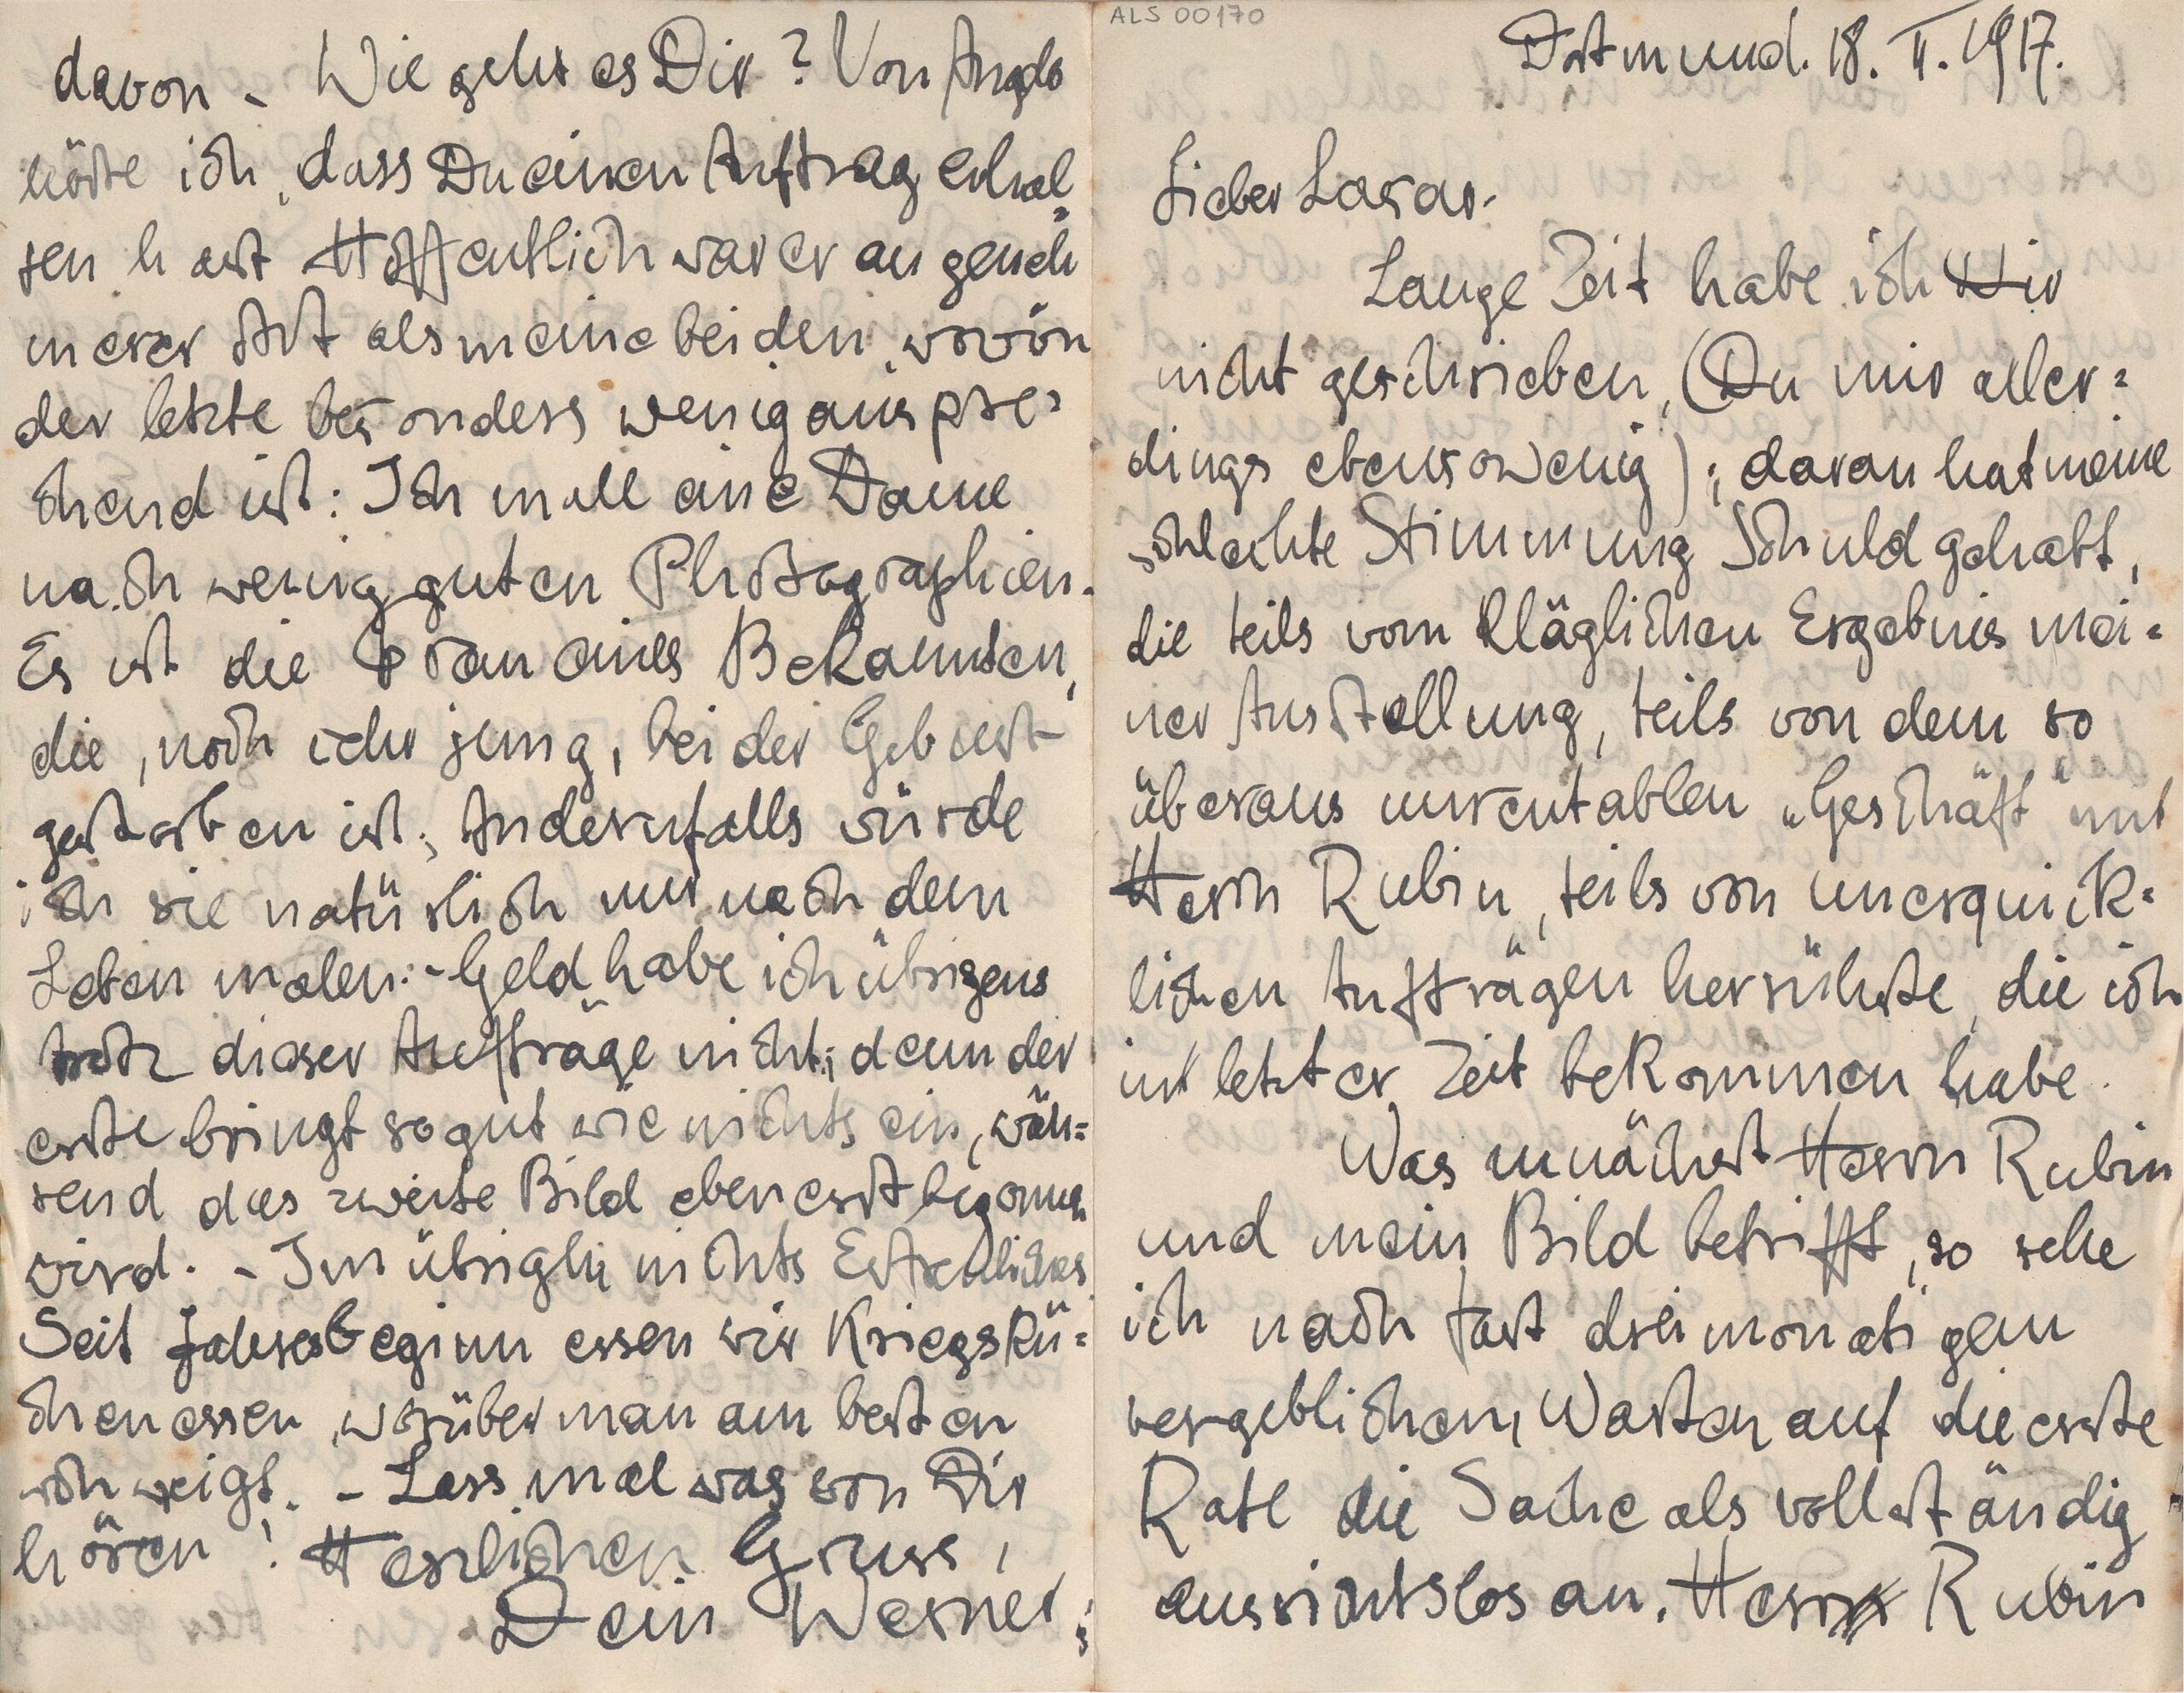 ALS 00170
Dortmund. 18. II. 1917.
Lieber Lasar.
Lange Zeit habe ich Dir
nicht geschrieben, (Du mir aller=
dings ebensowenig); daran hat meine
schlechte Stimmung Schuld gehabt,
die teils vom kläglichen Ergebnis mei=
ner Ausstellung, teils von dem so
überaus unrentablen „Geschäft" mit
Herrn Rubin, teils von unerquick=
lichen Aufträgen herrührte, die ich
in letzter Zeit bekommen habe.
Was zunächst Herrn Rubin
und mein Bild betrifft, so sehe
ich nach fast dreimonatigem
vergeblichem Warten auf die erste
Rate die Sache als vollständig
aussichtslos an. Herr Rubin
davon – Wie geht es Dir? Von Anglo
hörte ich, dass Du einen Auftrag erhal=
ten hast Hoffentlich war er angeneh
merer Art als meine beiden, wovon
der letzte besonders wenig anspre=
chend ist: Ich male eine Dame
nach wenig guten Photographien.
Es ist die Frau eines Bekannten,
die, noch sehr jung, bei der Geburt
gestorben ist; Andernfalls würde
ich sie natürlich nur nach dem
Leben malen. – Geld habe ich übrigens
trotz dieser Aufträge nicht; denn der
erste bringt so gut wie nichts ein, wäh=
rend das zweite Bild eben erst begonnen
wird. – Im übrigen nichts Erfreuliches
Seit Jahresbeginn essen wir Kriegskü=
chenessen, worüber man am besten
schweigt. – Lass mal was von Dir
hören! Herzlichen Gruss,
Dein Werner.